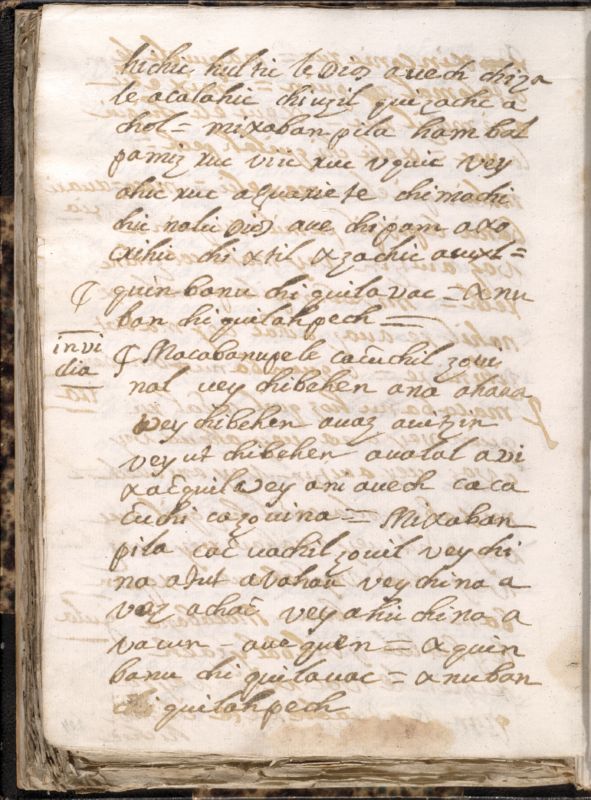 hichic hulric le Dios auech chiza
le acalahic chiuzil quizachi a
chol = mixaban pila ham bal
pamiz ruc viric ruc vquic vey
ahic ruc aquexiele chimachi
hic nalic Dios aue chi pam axo
cxihic chi xtil axzachic auxl=
₵ quin banu chi quila vac = anu
ban chi quilah pech =
invi
dia
₵ Macabanupele cacuchil zoui
nal vey chibehen ana ahaua
vey chibehen auaz auitzin
vey ut chibehen aualal avi
xacquil vey ani auech caca
cuchi cazouina = Mixaban
pila cac uachil zouil vey chi
na atut avahau vey china a
vaz achac vey ahic china a
vacun - aue quen = a quin
banu chi quilauac = anuban
chi quilahpech